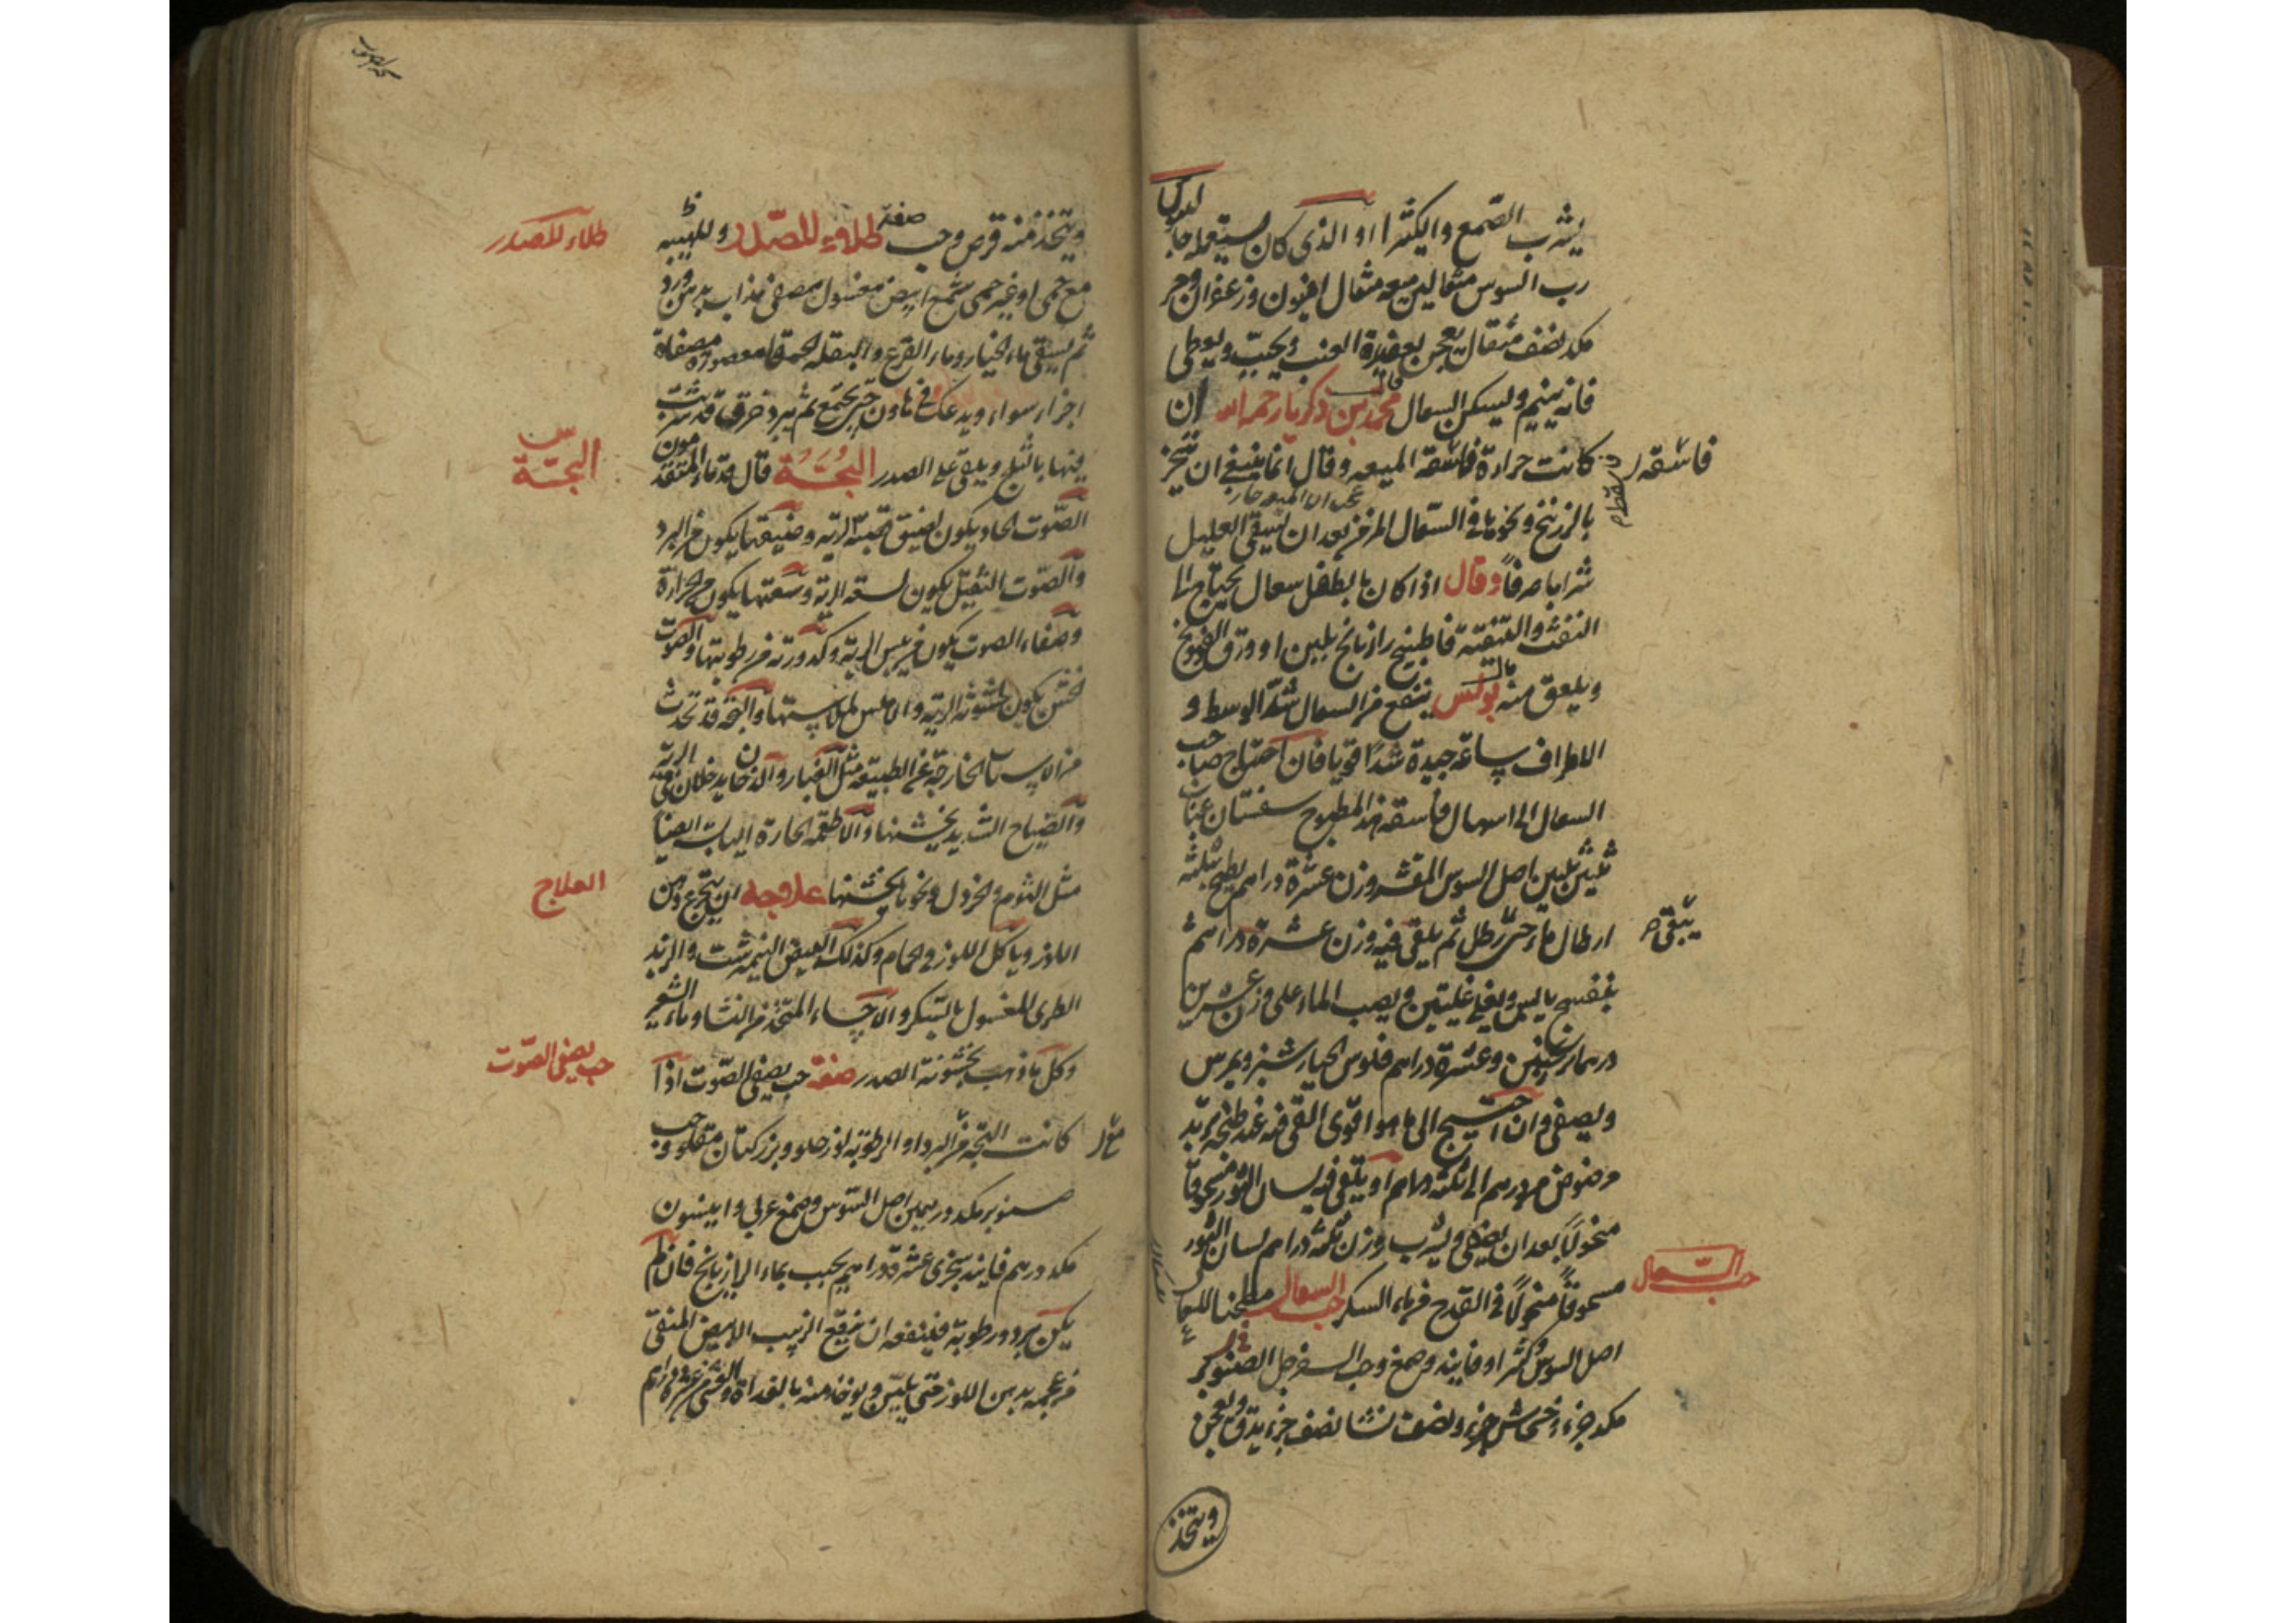 يشرب الصمغ والكثيرا او الذي كان يستعمله جالينوس
رب السوس مثقالين ميعه مثقال افيون وزعفران ومر
مكد نصف مثقال يعجن بعقيد العنب ويحبب ويعطى
فانه ينيم ويسكن السعال قال محمد بن زكريا رحمه الله ان
كانت حرارة فاسقه الميعه وقال انما ينبغي ان يتبخر
بالزرنيخ ونحوها في السعال المزمن بعد ان يسقى العليل
شرابا صرفا وقال اذا كان بالطفل سعال يحتاج الى
النفث والتنقية فاطبخ رازيانج بلبن او ورق الفوتنج
ويلعق منه قال بولس ينفع من السعال شد الوسط و
الاطراف ساعة جيدة شدا قويا فان احتاج صاحب
السعال الى اسهال فاسقه هذا المطبوخ سفستان عناب
ثلثين ثلثين اصل السوس المقشر وزن عشرة دراهم يطبخ بثلثة
ارطال ماء حتى رطل ثم يلقى فيه وزن عشرة دراهم
بنفسج يابس ويغلى غليتين ويصب الماء على وزن عشرين
درهما ترنجبين وعشرة دراهم فلوس الخيارشنبر ويمرس
ويصفى وان احتيج الى ما هو اقوى القي فيه عند طبخه تربد
مرضوض من درهم الى ثلثة دراهم او يلقى فيه لسان الثور مسحوقا
منخولا بعد ان يصفى ويشرب وزن ثلثة دراهم لسان الثور
مسحوقا منخولا في القدح من ماء السكر حب السعال مطبخنا للسعال
اصل السوس وكثيرا وفانيذ وصمغ وحب السفرجل الصنوبر
مكد جزء وخشخاش جزء ونصف نشا نصف جزء يدق ويعجن
فاسقه
يبقى
حب السعال
ويتخذ
ويتخذ منه قرص وحب صفة طلاء للصدر وللهيبه
مع حمى او غير حمى شمع ابيض مغسول مصفى يذاب بدهن ورد
ثم يسقى ماء الخيار وماء القرع والبقلة الحمقا معصورة مصفاة
اجزاء سواء ويدعك في هاون حتى يجتمع ثم يبرد خرق قد شربت
منها بالثلج ويلقى على الصدر البحة قال قدماء المتقدمون
الصوت الحاد يكون لضيق قصبة الرية وضيقها يكون من البرد
والصوت الثقيل يكون لسعة الرية وسعتها يكون من الحرارة
وصفاء الصوت يكون من يبس الرية وكدورته من رطوبتها والصوت
الخشن يكون لخشونة الرية والاملس لملاستها والبحة قد تحدث
من الاسباب الخارجة عن الطبيعة مثل الغبار والدخان يدخلان في الرية
والصياح الشديد يخشنها والاطعمة الحارة اليابسة ايضا
مثل الثوم والخردل ونحوها يخشنها علاجه ان يتجرع دهن
اللوز وياكل اللوز في الحمام وكذلك البيض النيمرشت والزبد
الطري المغسول بالسكر والاحساء المتخذ من النشا وماء الشعير
وكل ما ذهب بخشونة الصدر صفة حب يصفي الصوت اذا
كانت البحة من البرد او الرطوبة لوز حلو وبزر كتان مقلو وحب
صنوبر مكد درهمين اصل السوس وصمغ عربي وانيسون
مكد درهم فانيذ سنجري عشرة دراهم يحبب بماء الرازيانج فان لم
يكن برد ورطوبة فلينفعه ان ينقع الزبيب الابيض المنقى
من عجمه بدهن اللوز حتى يلين ويوخذ منه بالغداة والعشى عشرة دراهم
طلاء للصدر
البحة
العلاج
حب يصفي الصوت